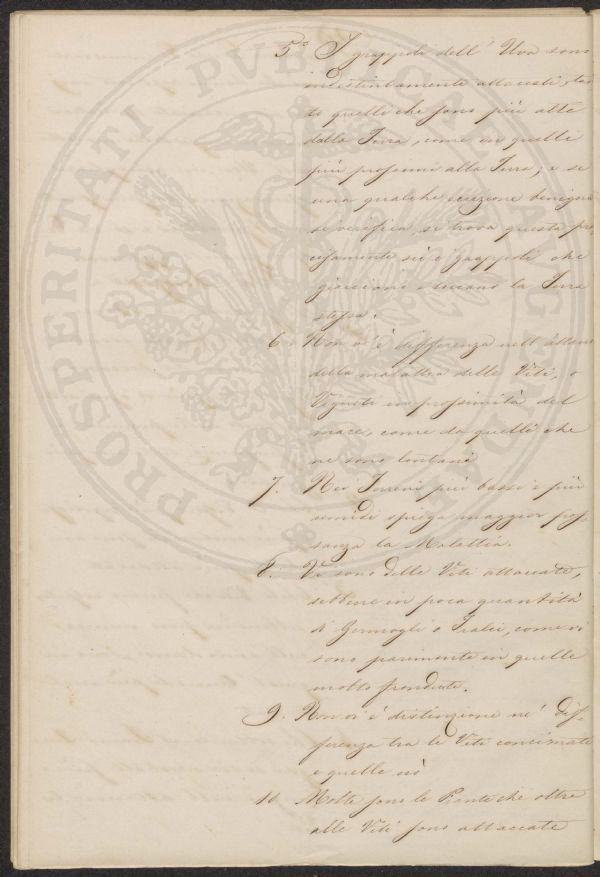 5.° I grappoli dell' Uva sono
indistintamente attaccati, tan
to quelli che sono più alti
dalla Terra, come in quelli
più prossimi alla Terra, e se
una qualche eccezione benigna
si verifica, si trova questa pre
cisamente sù i grappoli che
giacciono e toccano la Terra
stessa.
6. Non vi è differenza nell'
della malattia delle Viti, o
Vigneti in prossimità del
mare, come da quelli che
ne sono lontani
7. Nei Terreni più bassi e più
umidi spiega maggior pos
sanza la Malattia.
8. Vi sono delle Viti attaccate,
sebbene in poca quantità
di Germogli o Tralci, come vi
sono parimente in quelle
molto frondute.
9. Non vi è distinzione nè dif
ferenza tra le Viti concimate
e quelle nò
10. Molte sono le Piante che oltre
alle Viti sono attaccate
PROSPERITATI PUBLICAE AUGENDAE